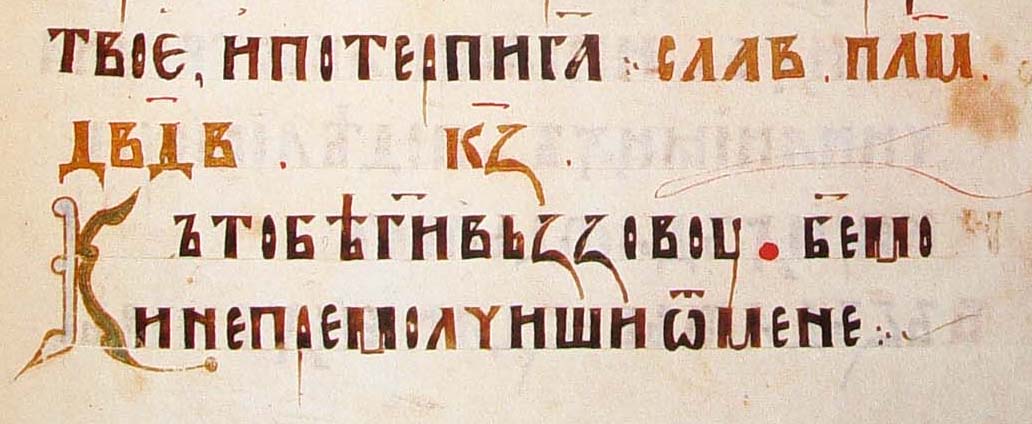 твоє, и потерпи г҃а : слав . пл҃м .
дв҃дв . к҃з .
Къ тобѣ г҃и вьззовоу . б҃е мо
и не премолчиши ѿ мене :